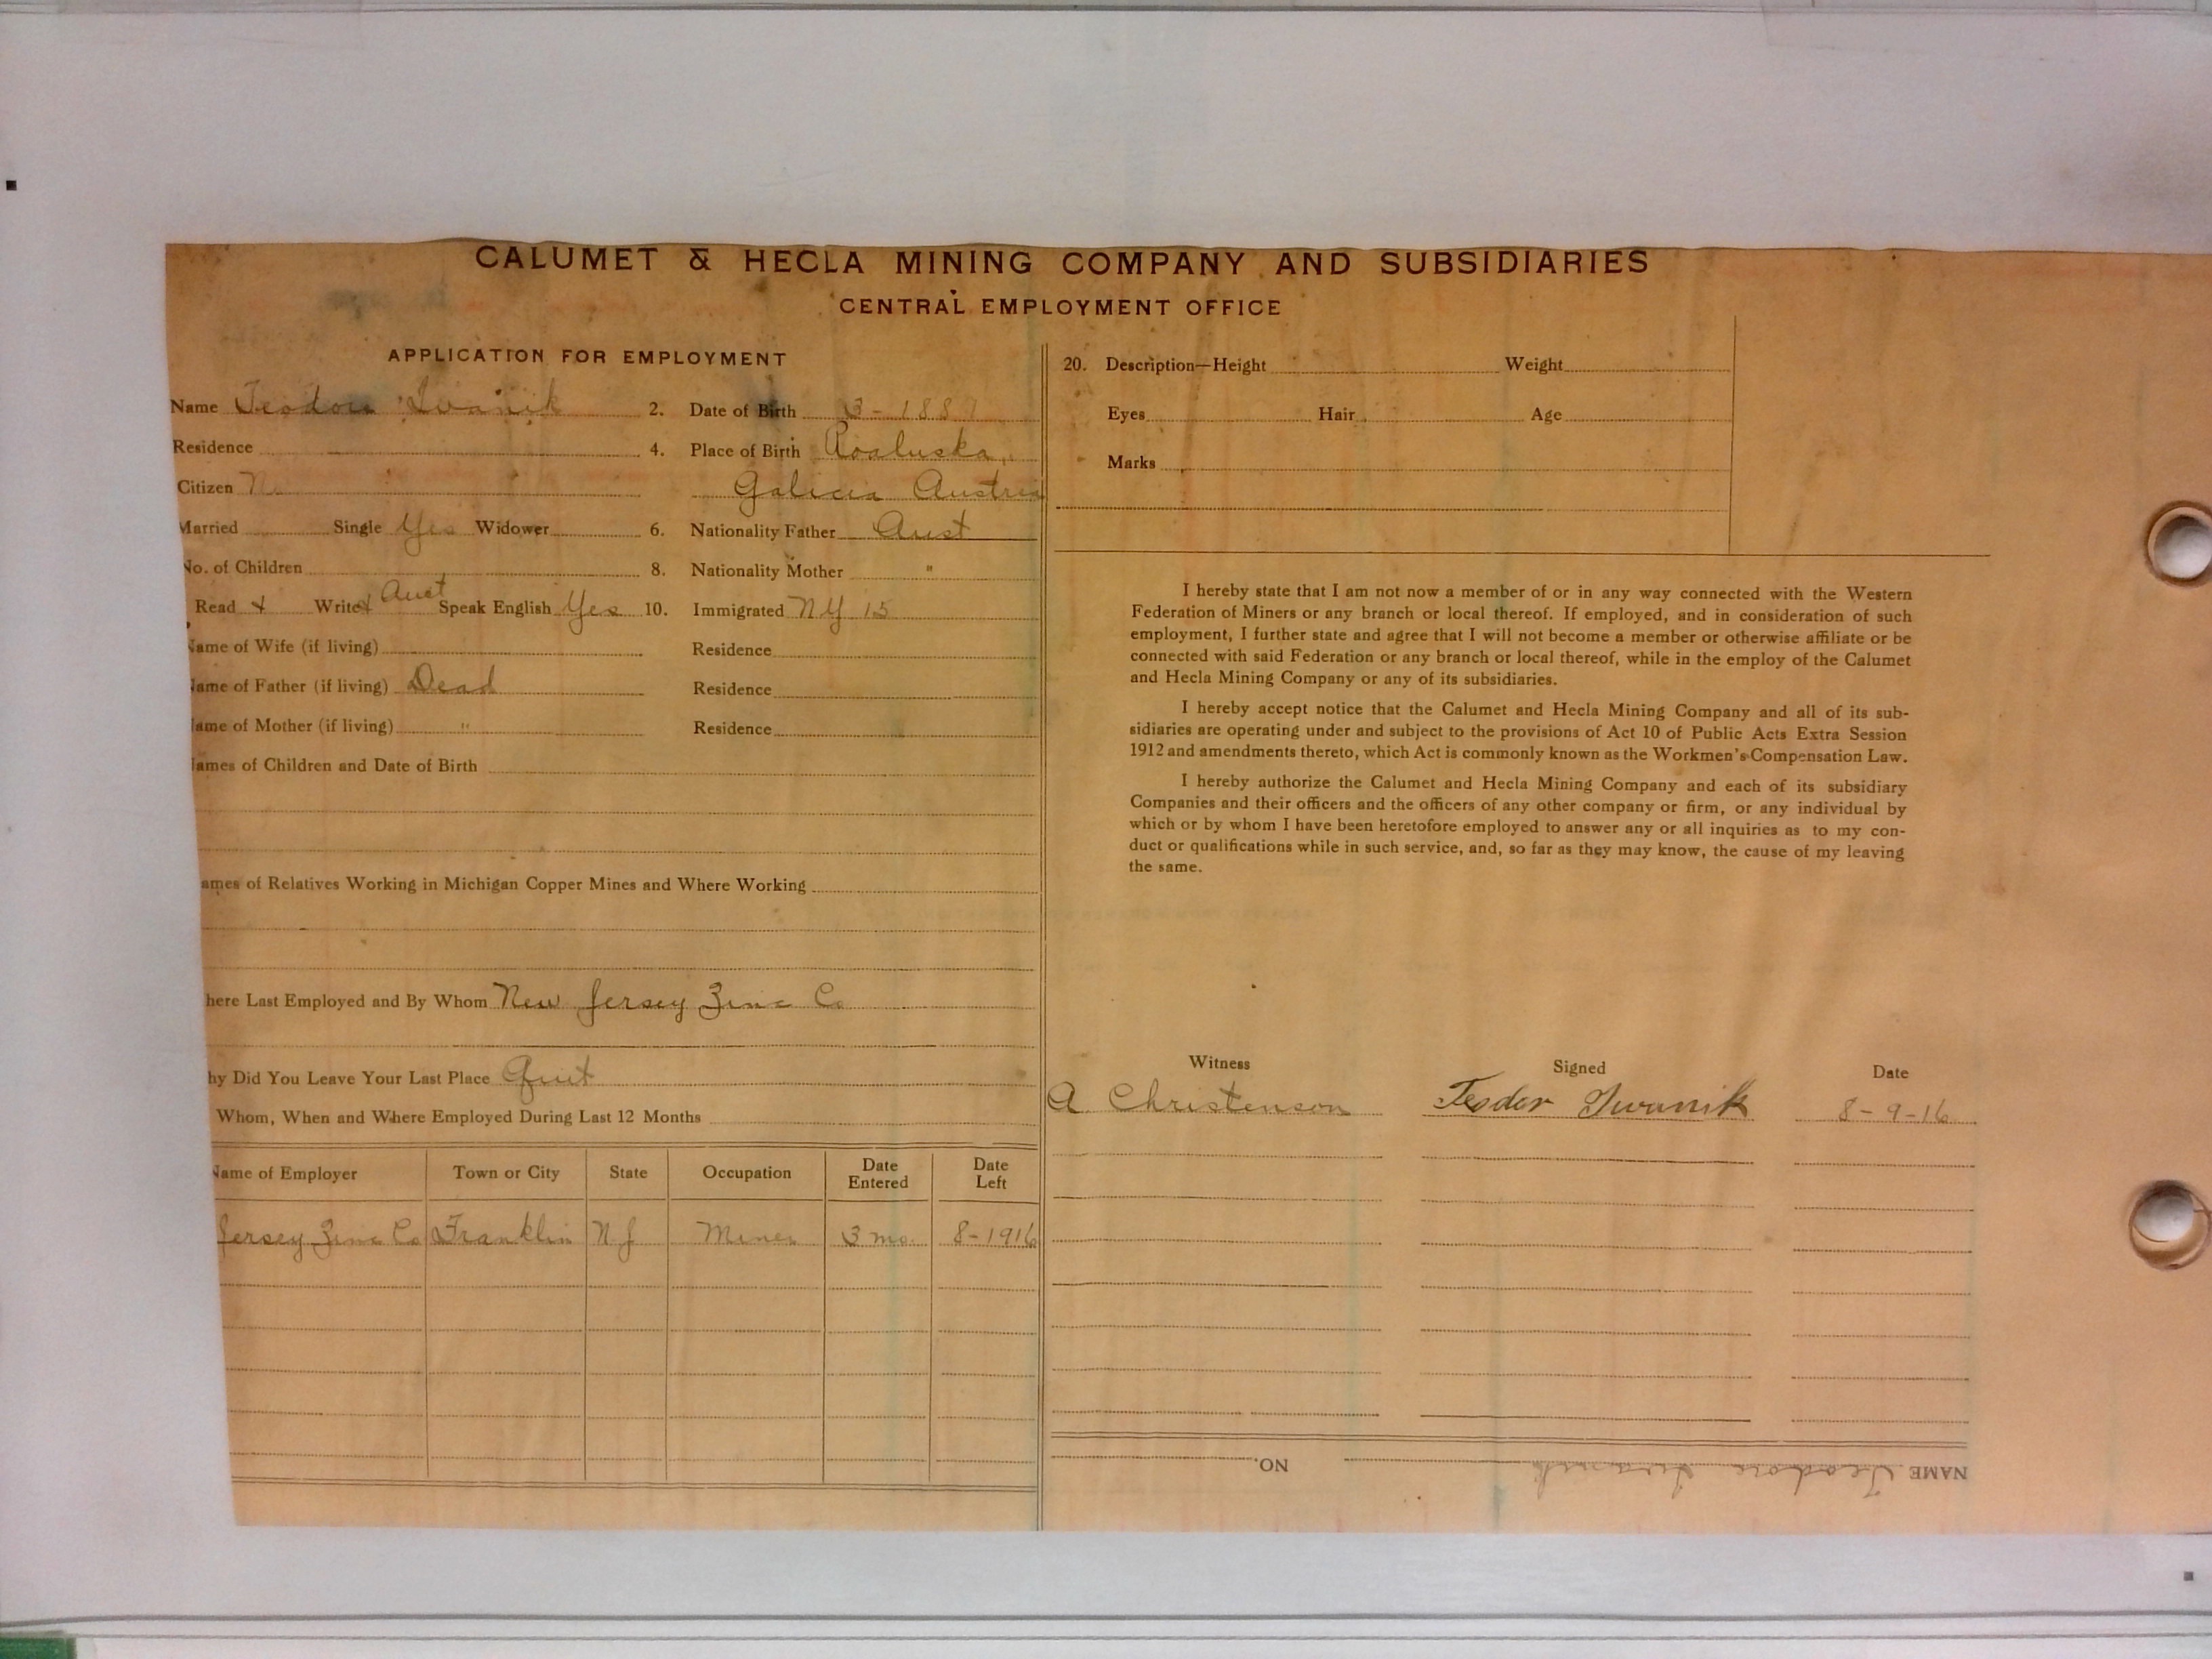 CALUMET & HECLA MINING COMPANY AND SUBSIDIARIES
CENTRAL EMPLOYMENT OFFICE
APPLICATION FOR EMPLOYMENT
Name Teodore Iwanik 2. Date of Birth 3-1887
Residence 4. Place of Birth
Citizen No Galicia Austria
Married Single Yes Widower 6. Nationality Father Aust
No. of Children 8. Nationality Mother "
Read + Write + Aust Speak English Yes 10. Immigrated NY 15
Name of Wife (if living) Residence
Name of Father (if living) Dead Residence
Name of Mother (if living) " Residence
Names of Children and Date of Birth
ames of Relatives Working in Michigan Copper Mines and Where Working
here Last Employed and By Whom New Jersey Zinc Co
hy Did You Leave Your Last Place Quit
Whom, When and Where Employed During Last 12 Months
Name of Employer Town or City State Occupation Date Entered Date Left
Jersey Zinc Co Franklin N J Miner 3 mo. 8-1916
20. Description—Height Weight
Eyes Hair Age
Marks
I hereby state that I am not now a member of or in any way connected with the Western
Federation of Miners or any branch or local thereof. If employed, and in consideration of such
employment, I further state and agree that I will not become a member or otherwise affiliate or be
connected with said Federation or any branch or local thereof, while in the employ of the Calumet
and Hecla Mining Company or any of its subsidiaries.
I hereby accept notice that the Calumet and Hecla Mining Company and all of its sub-
sidiaries are operating under and subject to the provisions of Act 10 of Public Acts Extra Session
1912 and amendments thereto, which Act is commonly known as the Workmen's Compensation Law.
I hereby authorize the Calumet and Hecla Mining Company and each of its subsidiary
Companies and their officers and the officers of any other company or firm, or any individual by
which or by whom I have been heretofore employed to answer any or all inquiries as to my con-
duct or qualifications while in such service, and, so far as they may know, the cause of my leaving
the same.
Witness Signed Date
A Christenson Teodor Iwanik 8-9-16
NAME Teodore Iwanik NO.